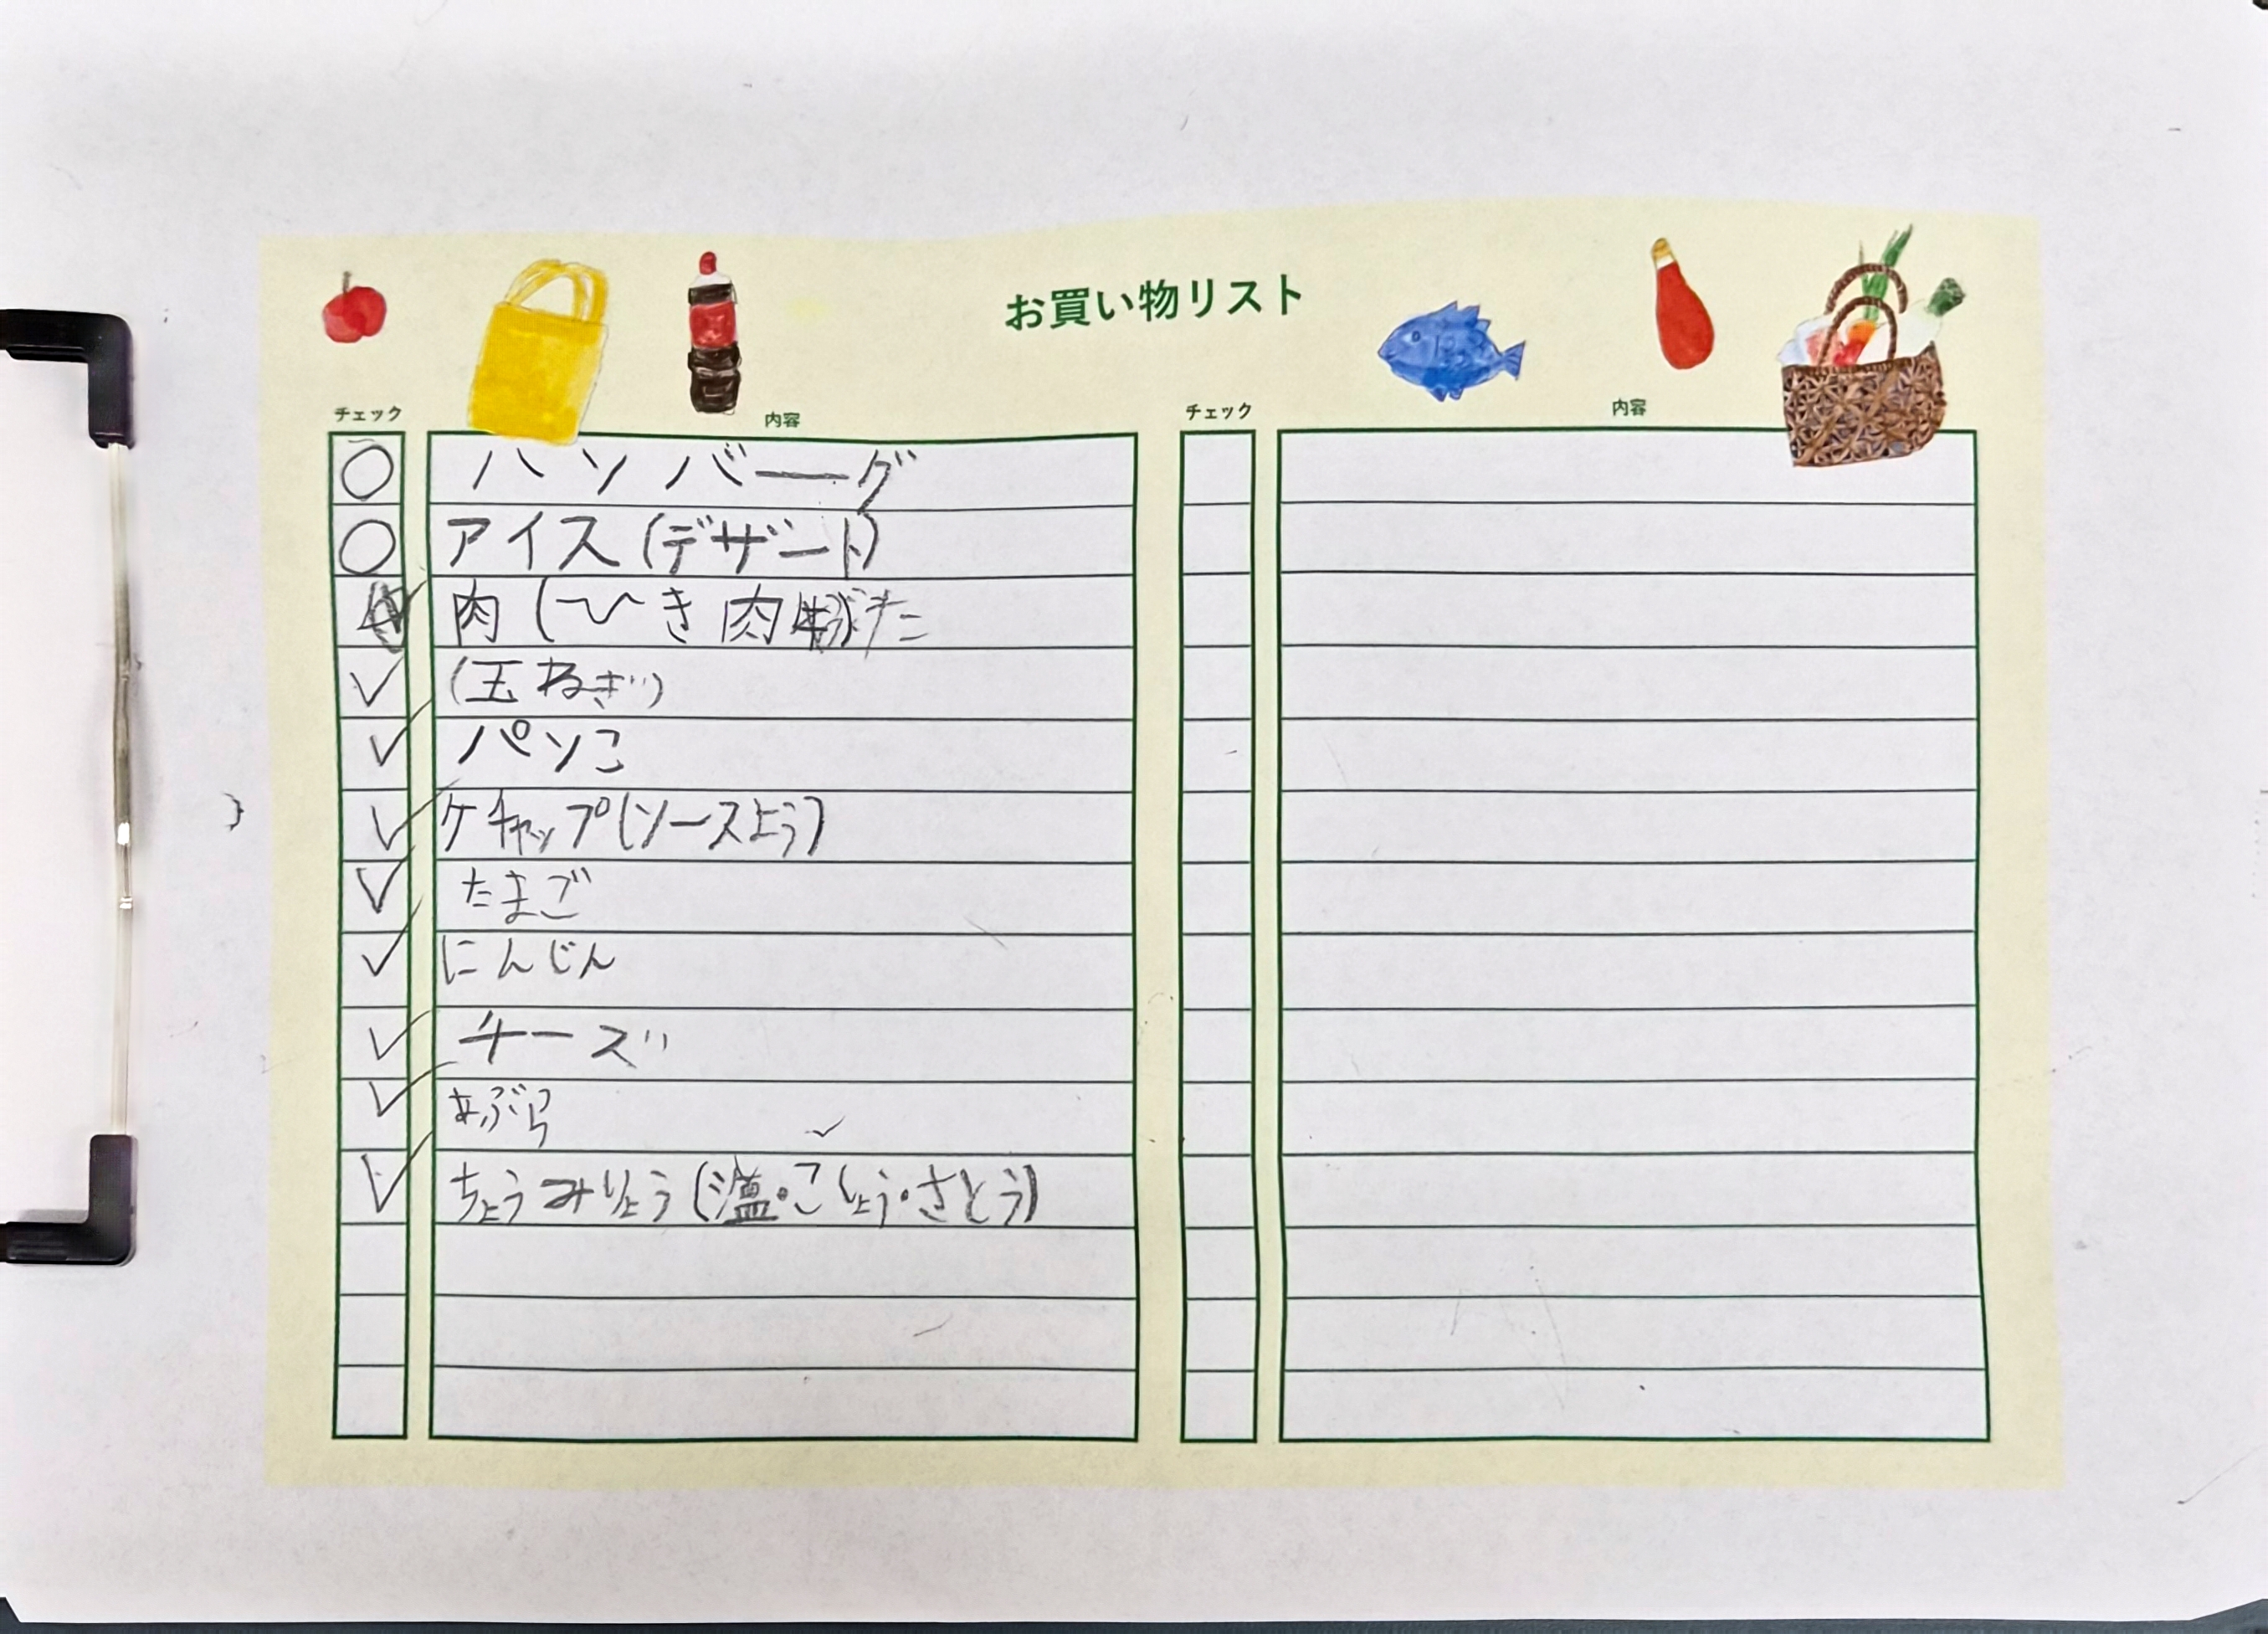 お買い物リスト
チェック 内容 チェック 内容
○ ハンバーグ
○ アイス(デザート)
肉(ひき肉ぶた
✓ (玉ねぎ)
✓ パンこ
✓ ケチャップ(ソースよう)
✓ たまご
✓ にんじん
✓ チーズ
✓ あぶら
✓ ちょうみりょう(塩・こしょう・さとう)